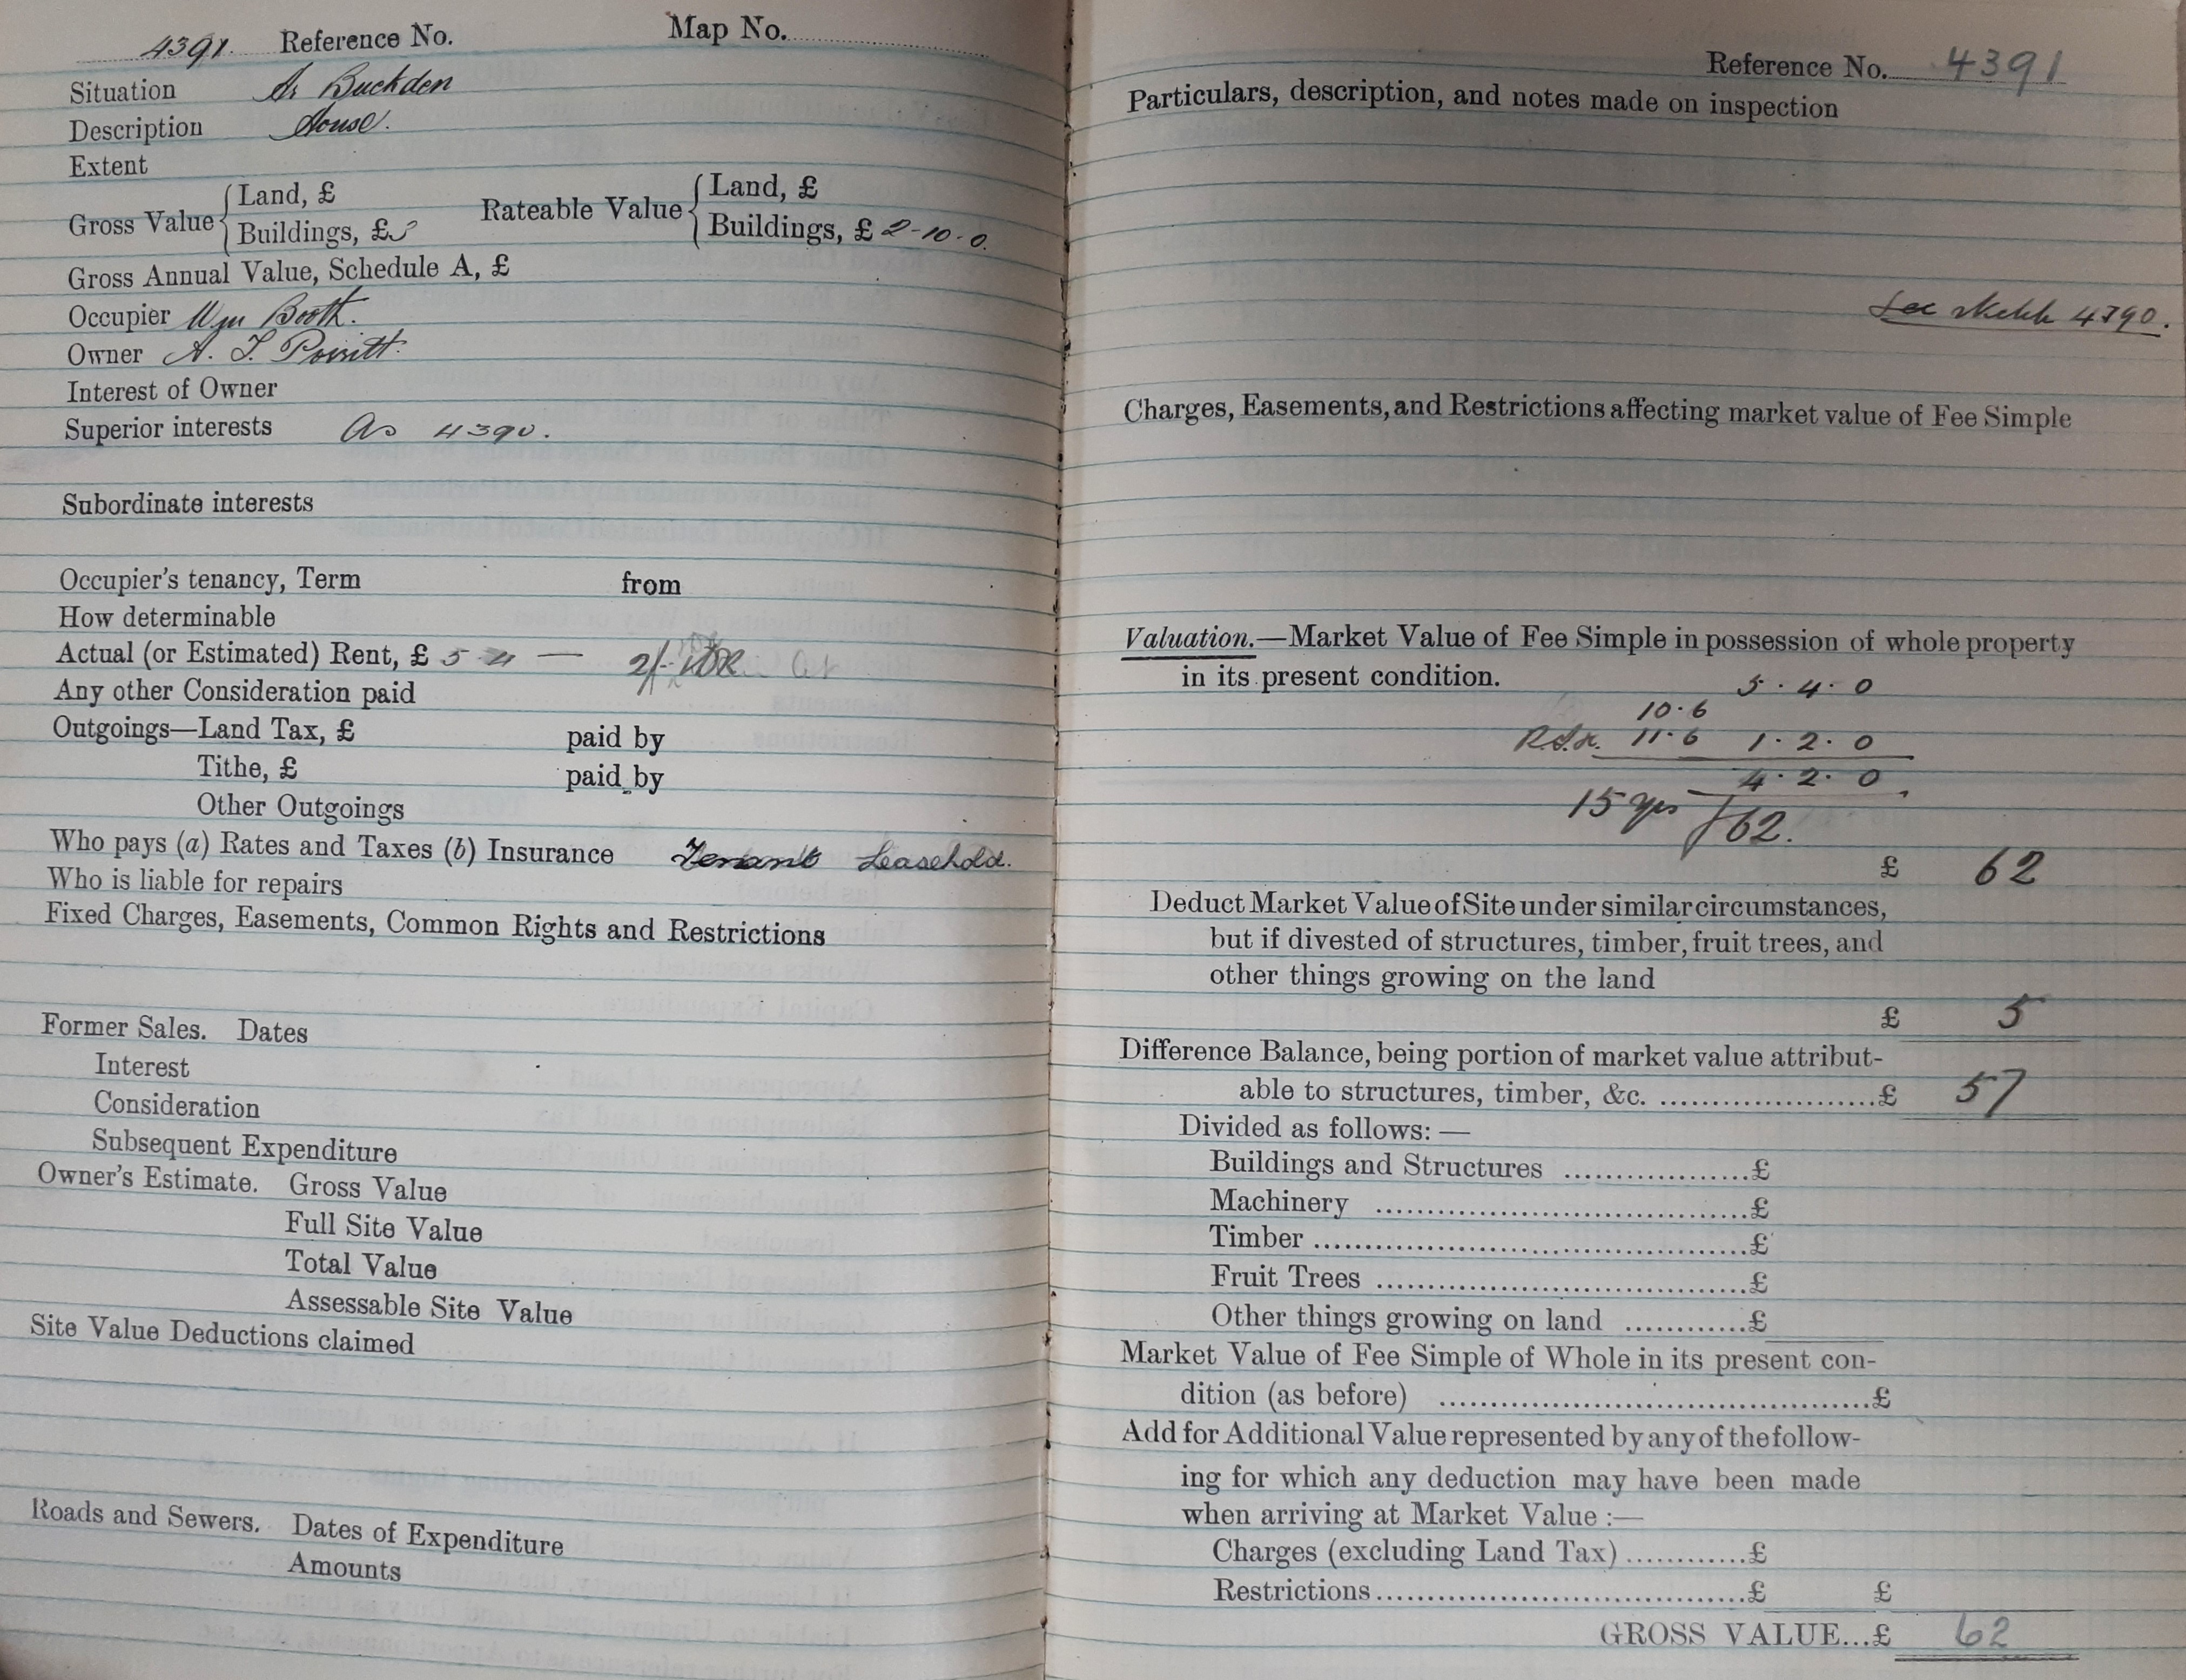 4391. Reference No. Map No.
Situation As Buckden
Description House.
Extent
Gross Value { Land, £ Rateable Value { Land, £
Buildings, £3 Buildings, £ 2-10-0.
Gross Annual Value, Schedule A, £
Occupier Wm Booth.
Owner A. T. Porritt.
Interest of Owner
Superior interests As 4390.
Subordinate interests
Occupier's tenancy, Term from
How determinable
Actual (or Estimated) Rent, £ 5 4 — 2/-
Any other Consideration paid
Outgoings—Land Tax, £ paid by
Tithe, £ paid by
Other Outgoings
Who pays (a) Rates and Taxes (b) Insurance Tenant Leasehold.
Who is liable for repairs
Fixed Charges, Easements, Common Rights and Restrictions
Former Sales. Dates
Interest
Consideration
Subsequent Expenditure
Owner's Estimate. Gross Value
Full Site Value
Total Value
Assessable Site Value
Site Value Deductions claimed
Roads and Sewers. Dates of Expenditure
Amounts
Reference No. 4391
Particulars, description, and notes made on inspection
See sketch 4390.
Charges, Easements, and Restrictions affecting market value of Fee Simple
Valuation.—Market Value of Fee Simple in possession of whole property
in its present condition.
5.4.0
10.6
11.6 1.2.0
4.2.0
15 yrs £62.
£ 62
Deduct Market Value of Site under similar circumstances,
but if divested of structures, timber, fruit trees, and
other things growing on the land
£ 5
Difference Balance, being portion of market value attribut-
able to structures, timber, &c. ....................£ 57
Divided as follows:—
Buildings and Structures ..................£
Machinery ....................................£
Timber ..........................................£
Fruit Trees ....................................£
Other things growing on land ............£
Market Value of Fee Simple of Whole in its present con-
dition (as before) ..........................................£
Add for Additional Value represented by any of the follow-
ing for which any deduction may have been made
when arriving at Market Value :—
Charges (excluding Land Tax) ............£
Restrictions....................................£ £
GROSS VALUE...£ 62